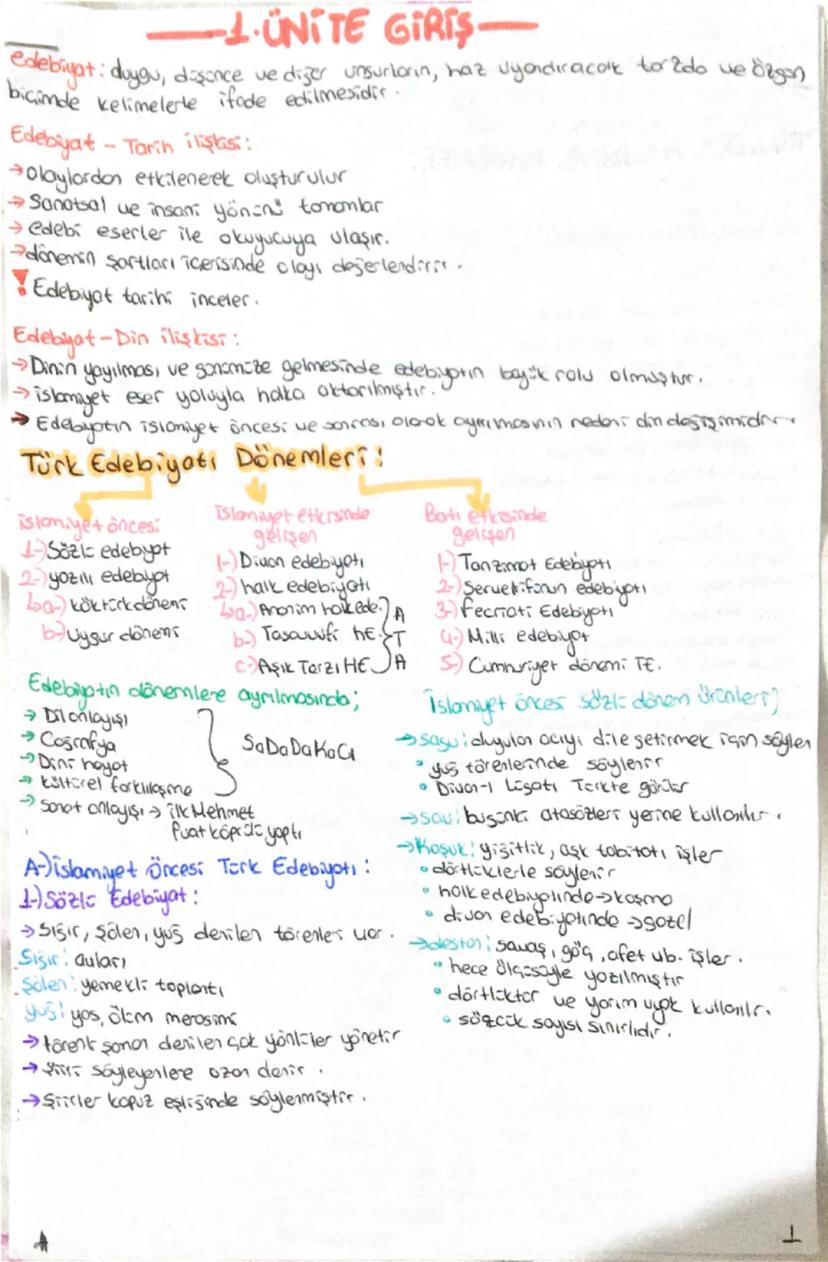 1. ÜNİTE GİRİŞ
Edebiyat: duygu, düşünce ve diğer unsurların, haz uyandıracak tarzda ve özgün
biçimde kelimelerle ifade edilmesidir.
Edebiyat - Tarih ilişkisi:
→ olaylardan etkilenerek oluşturulur
→ Sanatsal ve insani yönünü tamamlar
→ edebi eserler ile okuyucuya ulaşır.
→ dönemin şartları içerisinde olayı değerlendirir.
! Edebiyat tarihi inceler.
Edebiyat - Din ilişkisi:
→ Dinin yayılması ve günümüze gelmesinde edebiyatın büyük rolu olmuştur.
→ islamiyet eser yoluyla halka aktarılmıştır.
→ Edebiyatın islamiyet öncesi ve sonrası olarak ayrılmasının nedeni din değişimidir.
Türk Edebiyatı Dönemleri:
islamiyet öncesi
1-) Sözlü edebiyat
2-) yazılı edebiyat
↳ a-) köktürk dönemi
b-) uygur dönemi
İslamiyet etkisinde
gelişen
1-) Divan edebiyatı
2-) halk edebiyatı
↳ a-) Anonim halk ede. A
b-) Tasavvufi hE. T
c-) Aşık Tarzı HE A
Batı etkisinde
gelişen
1-) Tanzimat Edebiyatı
2-) Servetifünun edebiyatı
3-) Fecriati Edebiyatı
4-) Milli edebiyat
5-) Cumhuriyet dönemi TE.
Edebiyatın dönemlere ayrılmasında;
→ Dil anlayışı
→ Coğrafya
→ Dini hayat
→ kültürel farklılaşma
SaDaDaKaCı
→ sanat anlayışı → ilk Mehmet
fuat köprülü yaptı
A-) islamiyet Öncesi Türk Edebiyatı:
1-) Sözlü Edebiyat:
→ sığır, şölen, yuğ denilen törenler var.
Sığır: avları
Şölen: yemekli toplantı
yuğ: yas, ölüm merasimi
→ töreni şaman denilen çok yönlüler yönetir
→ şiiri söyleyenlere ozan denir.
→ şiirler kopuz eşliğinde söylenmiştir.
İslamiyet öncesi sözlü dönem Ürünleri;
→ sagu: duyulan acıyı dile getirmek için söylen
• yuğ törenlerinde söylenir
• Divan-ı Lügatı Türkte görülür
→ sav: bugünkü atasözleri yerine kullanılır.
→ Koşuk: yiğitlik, aşk tabiatı işler
• dörtlüklerle söylenir
• halk edebiyatında → koşma
• divan edebiyatında → gazel
→ destan: savaş, göç, afet vb. işler.
• hece ölçüsüyle yazılmıştır
• dörtlüktür ve yarım uyak kullanılır.
• sözcük sayısı sınırlıdır.
1